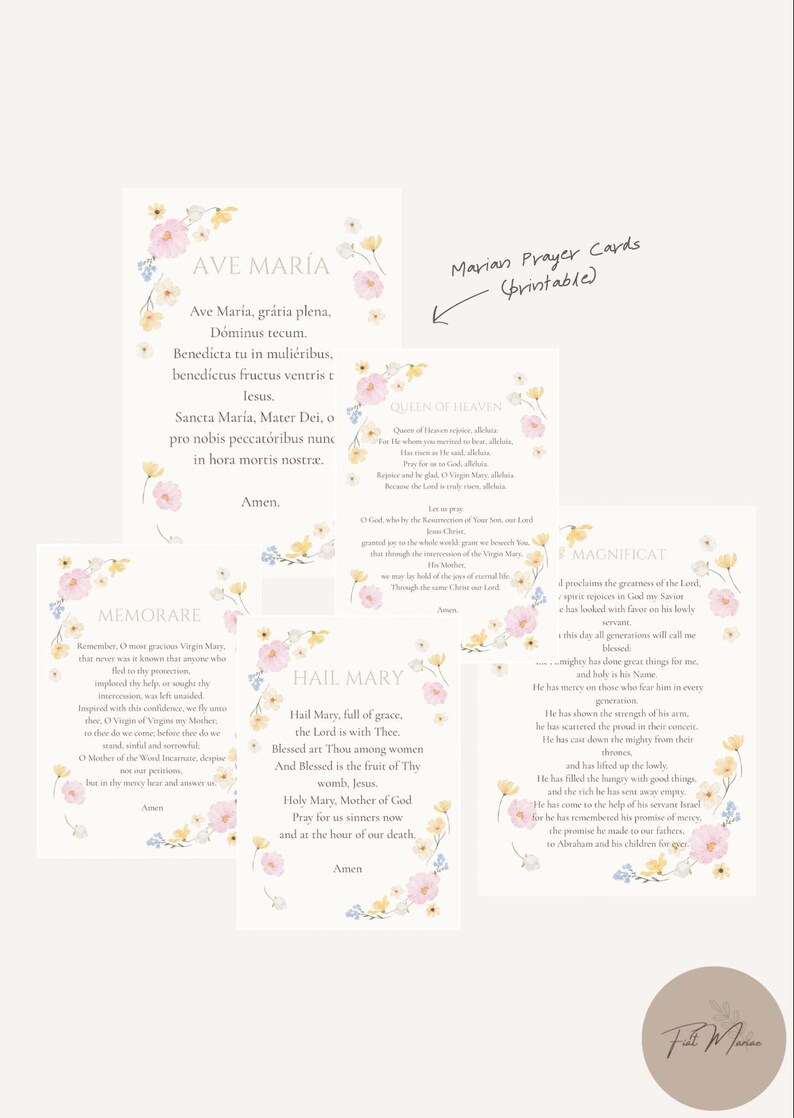 AVE MARÍA
Ave María, grátia plena,
Dóminus tecum.
Benedícta tu in muliéribus,
benedíctus fructus ventris t
Iesus.
Sancta María, Mater Dei, o
pro nobis peccatóribus nunc
in hora mortis nostræ.
Amen.
Marian Prayer Cards
(printable)
QUEEN OF HEAVEN
Queen of Heaven rejoice, alleluia:
For He whom you merited to bear, alleluia,
Has risen as He said, alleluia.
Pray for us to God, alleluia.
Rejoice and be glad, O Virgin Mary, alleluia.
Because the Lord is truly risen, alleluia.
Let us pray
O God, who by the Resurrection of Your Son, our Lord
Jesus Christ,
granted joy to the whole world: grant we beseech You,
that through the intercession of the Virgin Mary,
His Mother,
we may lay hold of the joys of eternal life.
Through the same Christ our Lord.
Amen.
MEMORARE
Remember, O most gracious Virgin Mary,
that never was it known that anyone who
fled to thy protection,
implored thy help, or sought thy
intercession, was left unaided.
Inspired with this confidence, we fly unto
thee, O Virgin of Virgins my Mother;
to thee do we come; before thee do we
stand, sinful and sorrowful;
O Mother of the Word Incarnate, despise
not our petitions,
but in thy mercy hear and answer us.
Amen
HAIL MARY
Hail Mary, full of grace,
the Lord is with Thee.
Blessed art Thou among women
And Blessed is the fruit of Thy
womb, Jesus.
Holy Mary, Mother of God
Pray for us sinners now
and at the hour of our death.
Amen
MAGNIFICAT
l proclaims the greatness of the Lord,
spirit rejoices in God my Savior
he has looked with favor on his lowly
servant.
this day all generations will call me
blessed:
the Almighty has done great things for me,
and holy is his Name.
He has mercy on those who fear him in every
generation.
He has shown the strength of his arm,
he has scattered the proud in their conceit.
He has cast down the mighty from their
thrones,
and has lifted up the lowly.
He has filled the hungry with good things,
and the rich he has sent away empty.
He has come to the help of his servant Israel
for he has remembered his promise of mercy,
the promise he made to our fathers,
to Abraham and his children for ever.
Fiat Mariae